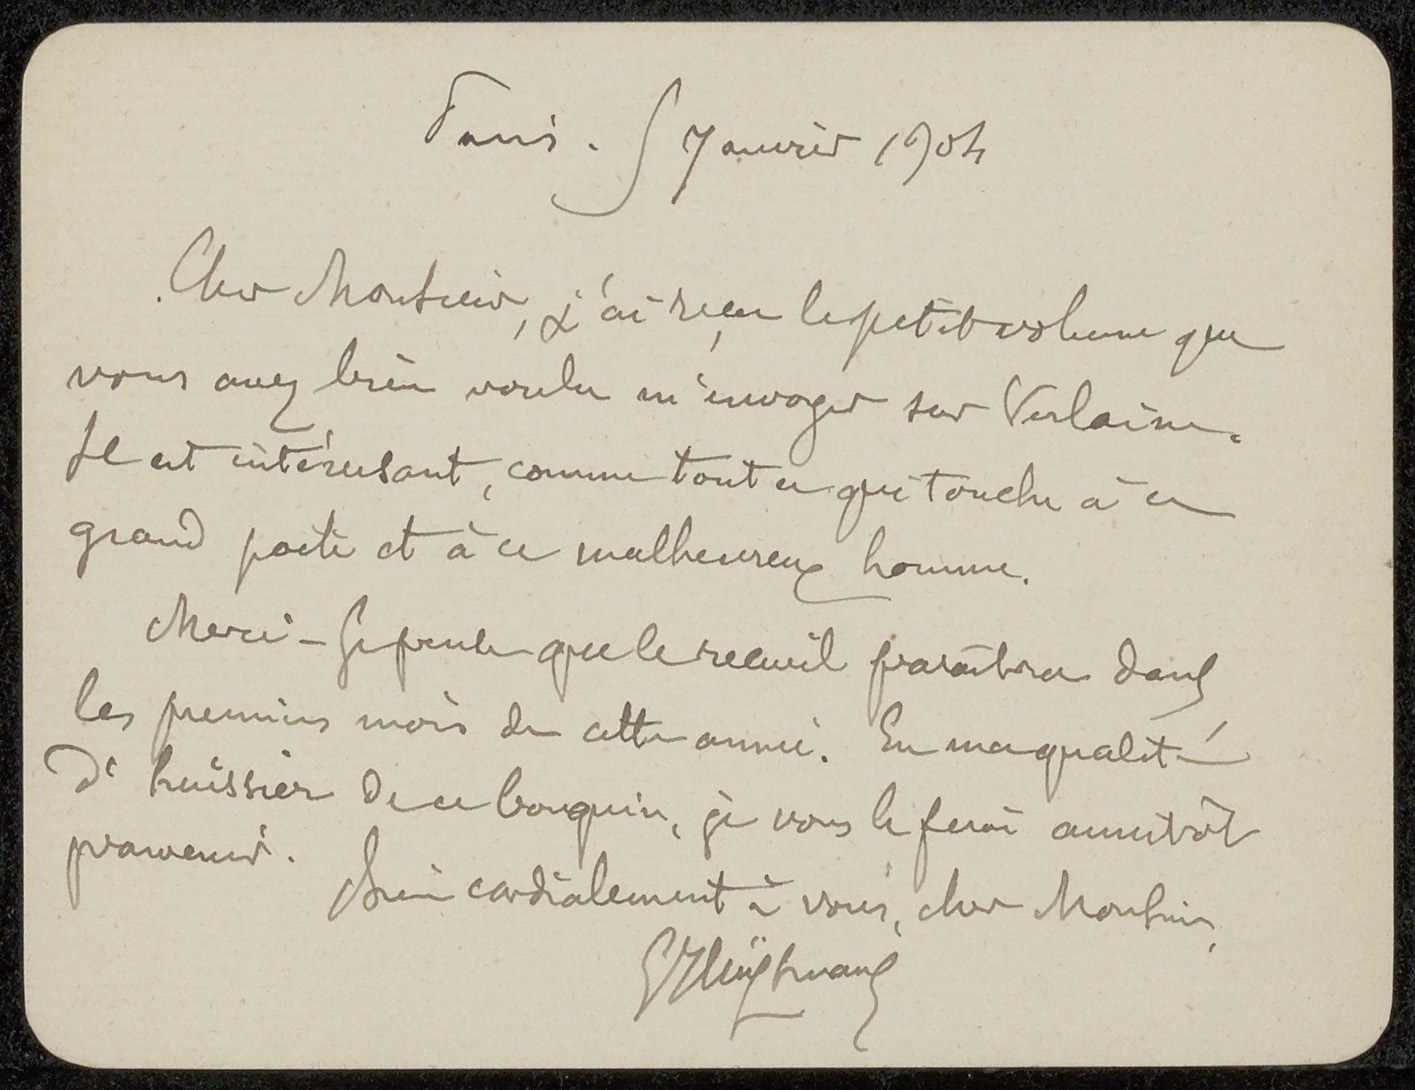 Paris. 5 Janvier 1904
Cher Monsieur, j'ai reçu le petit volume que
vous avez bien voulu m'envoyer sur Verlaine.
Il est intéressant, comme tout ce qui touche à ce
grand poète et à ce malheureux homme.
Merci – Je pense que le recueil paraîtra dans
les premiers mois de cette année. En ma qualité
d'huissier de ce bouquin, je vous le ferai aussitôt
parvenir.
Bien cordialement à vous, cher Monsieur,
GJ Huÿsmans